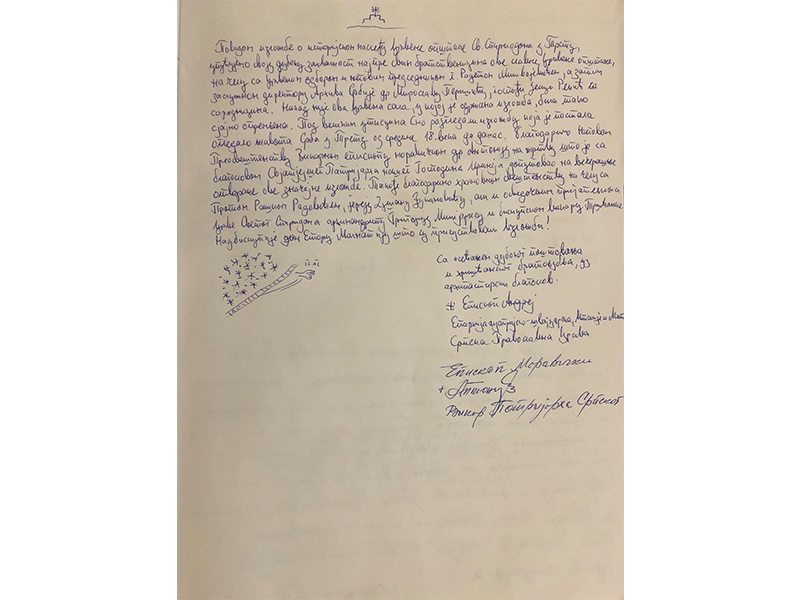 Поводом изложбе о историјском наслеђу црквене општине Св. Спиридона у Трсту,
упућујемо своју дубоку захвалност најпре свим братственицима ове славне црквене општине,
на челу са црквеним одбором и његовим председником г. Златом, а затим
заслужном директору Архива Србије др Мирославу Перишићу, госпођи Јелици Рељић са
сарадницима. Никад није ова црквена сала, у којој је одржана изложба, била тако
сјајно спремљена. Под великим утисцима смо разгледали изложбу која је постала
огледало живота Срба у Трсту од средине 18. века до данас. Благодаримо Његовом
Преосвештенству Викарном епископу моравичком др Антонију на труду што је са
благословом Св. Патријарха нашег Господина Иринеја допутовао на вечерашње
отварање ове значајне изложбе. Такође благодаримо храмовном свештенству на челу са
Протом Рашком Радовићем, јереју, им и обавезним пријатељима
цркве Светог Спиридона архимандриту Григорију и
Надбискупије дон Етору Малнати јер што су присуствовали изложби!
Са осећањем дубоког поштовања
и хришћанског братољубља, уз
архипастирски благослов.
+ Епископ Андреј
Епархија аустријско-швајцарска, Италије и Малте
Српска Православна Црква
Епископ Моравички
+ Антоније
Викар Патријарха Српског